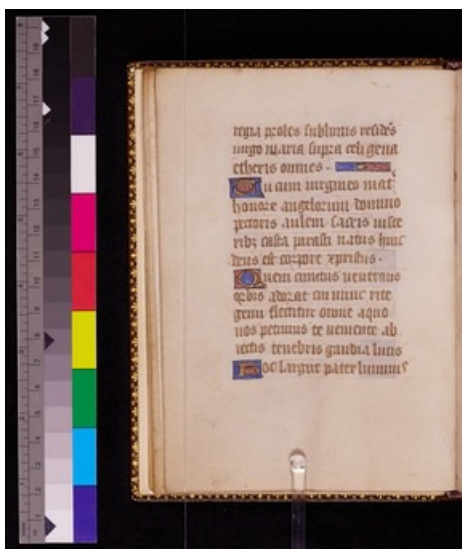 regia proles sublimis resides
virgo maria supra celi gena
etheris omnes
Tu cum virgineo mat
honore angelorum domino
pectoris aulem sacris visce
ribz casta parasti natus hinc
deus est corpore xpristus.
Quem cunctus venerans
orbis adorat cui nunc rite
genu flectitur omne a quo
nos petimus te veniente ab
iectis tenebris gaudia lucis
Hoc largire pater luminis